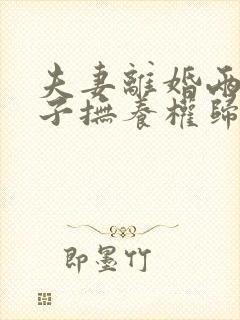 夫妻離婚兩
子撫養權歸
即墨竹